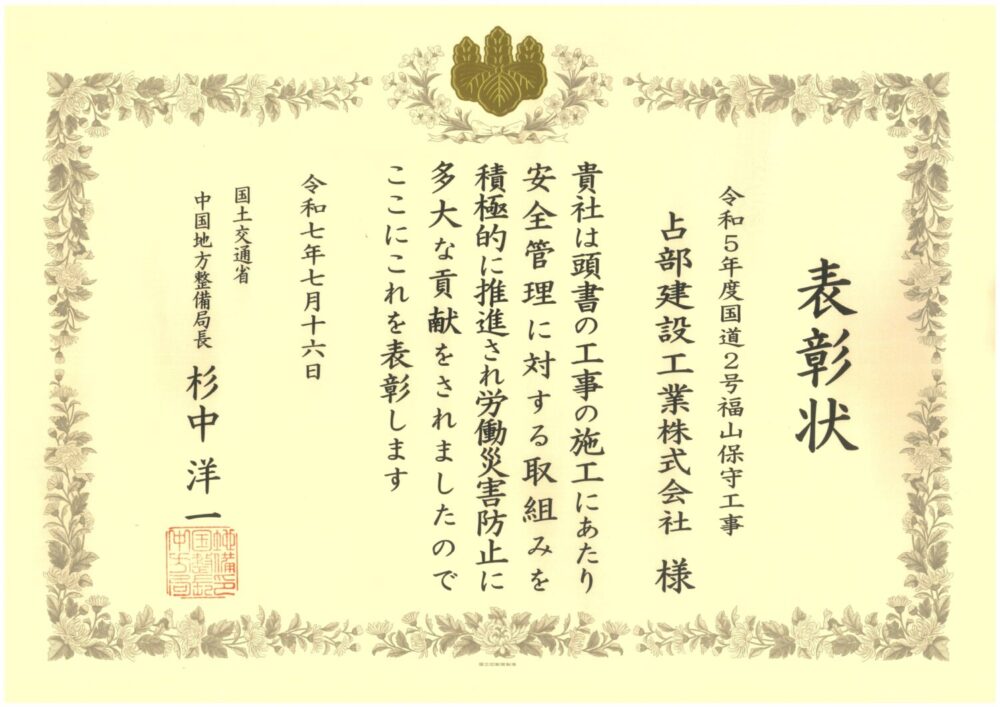 表彰状
令和5年度国道2号福山保守工事
占部建設工業株式会社 様
貴社は頭書の工事の施工にあたり
安全管理に対する取組みを
積極的に推進され労働災害防止に
多大な貢献をされましたので
ここにこれを表彰します
令和七年七月十六日
国土交通省
中国地方整備局長 杉中洋一